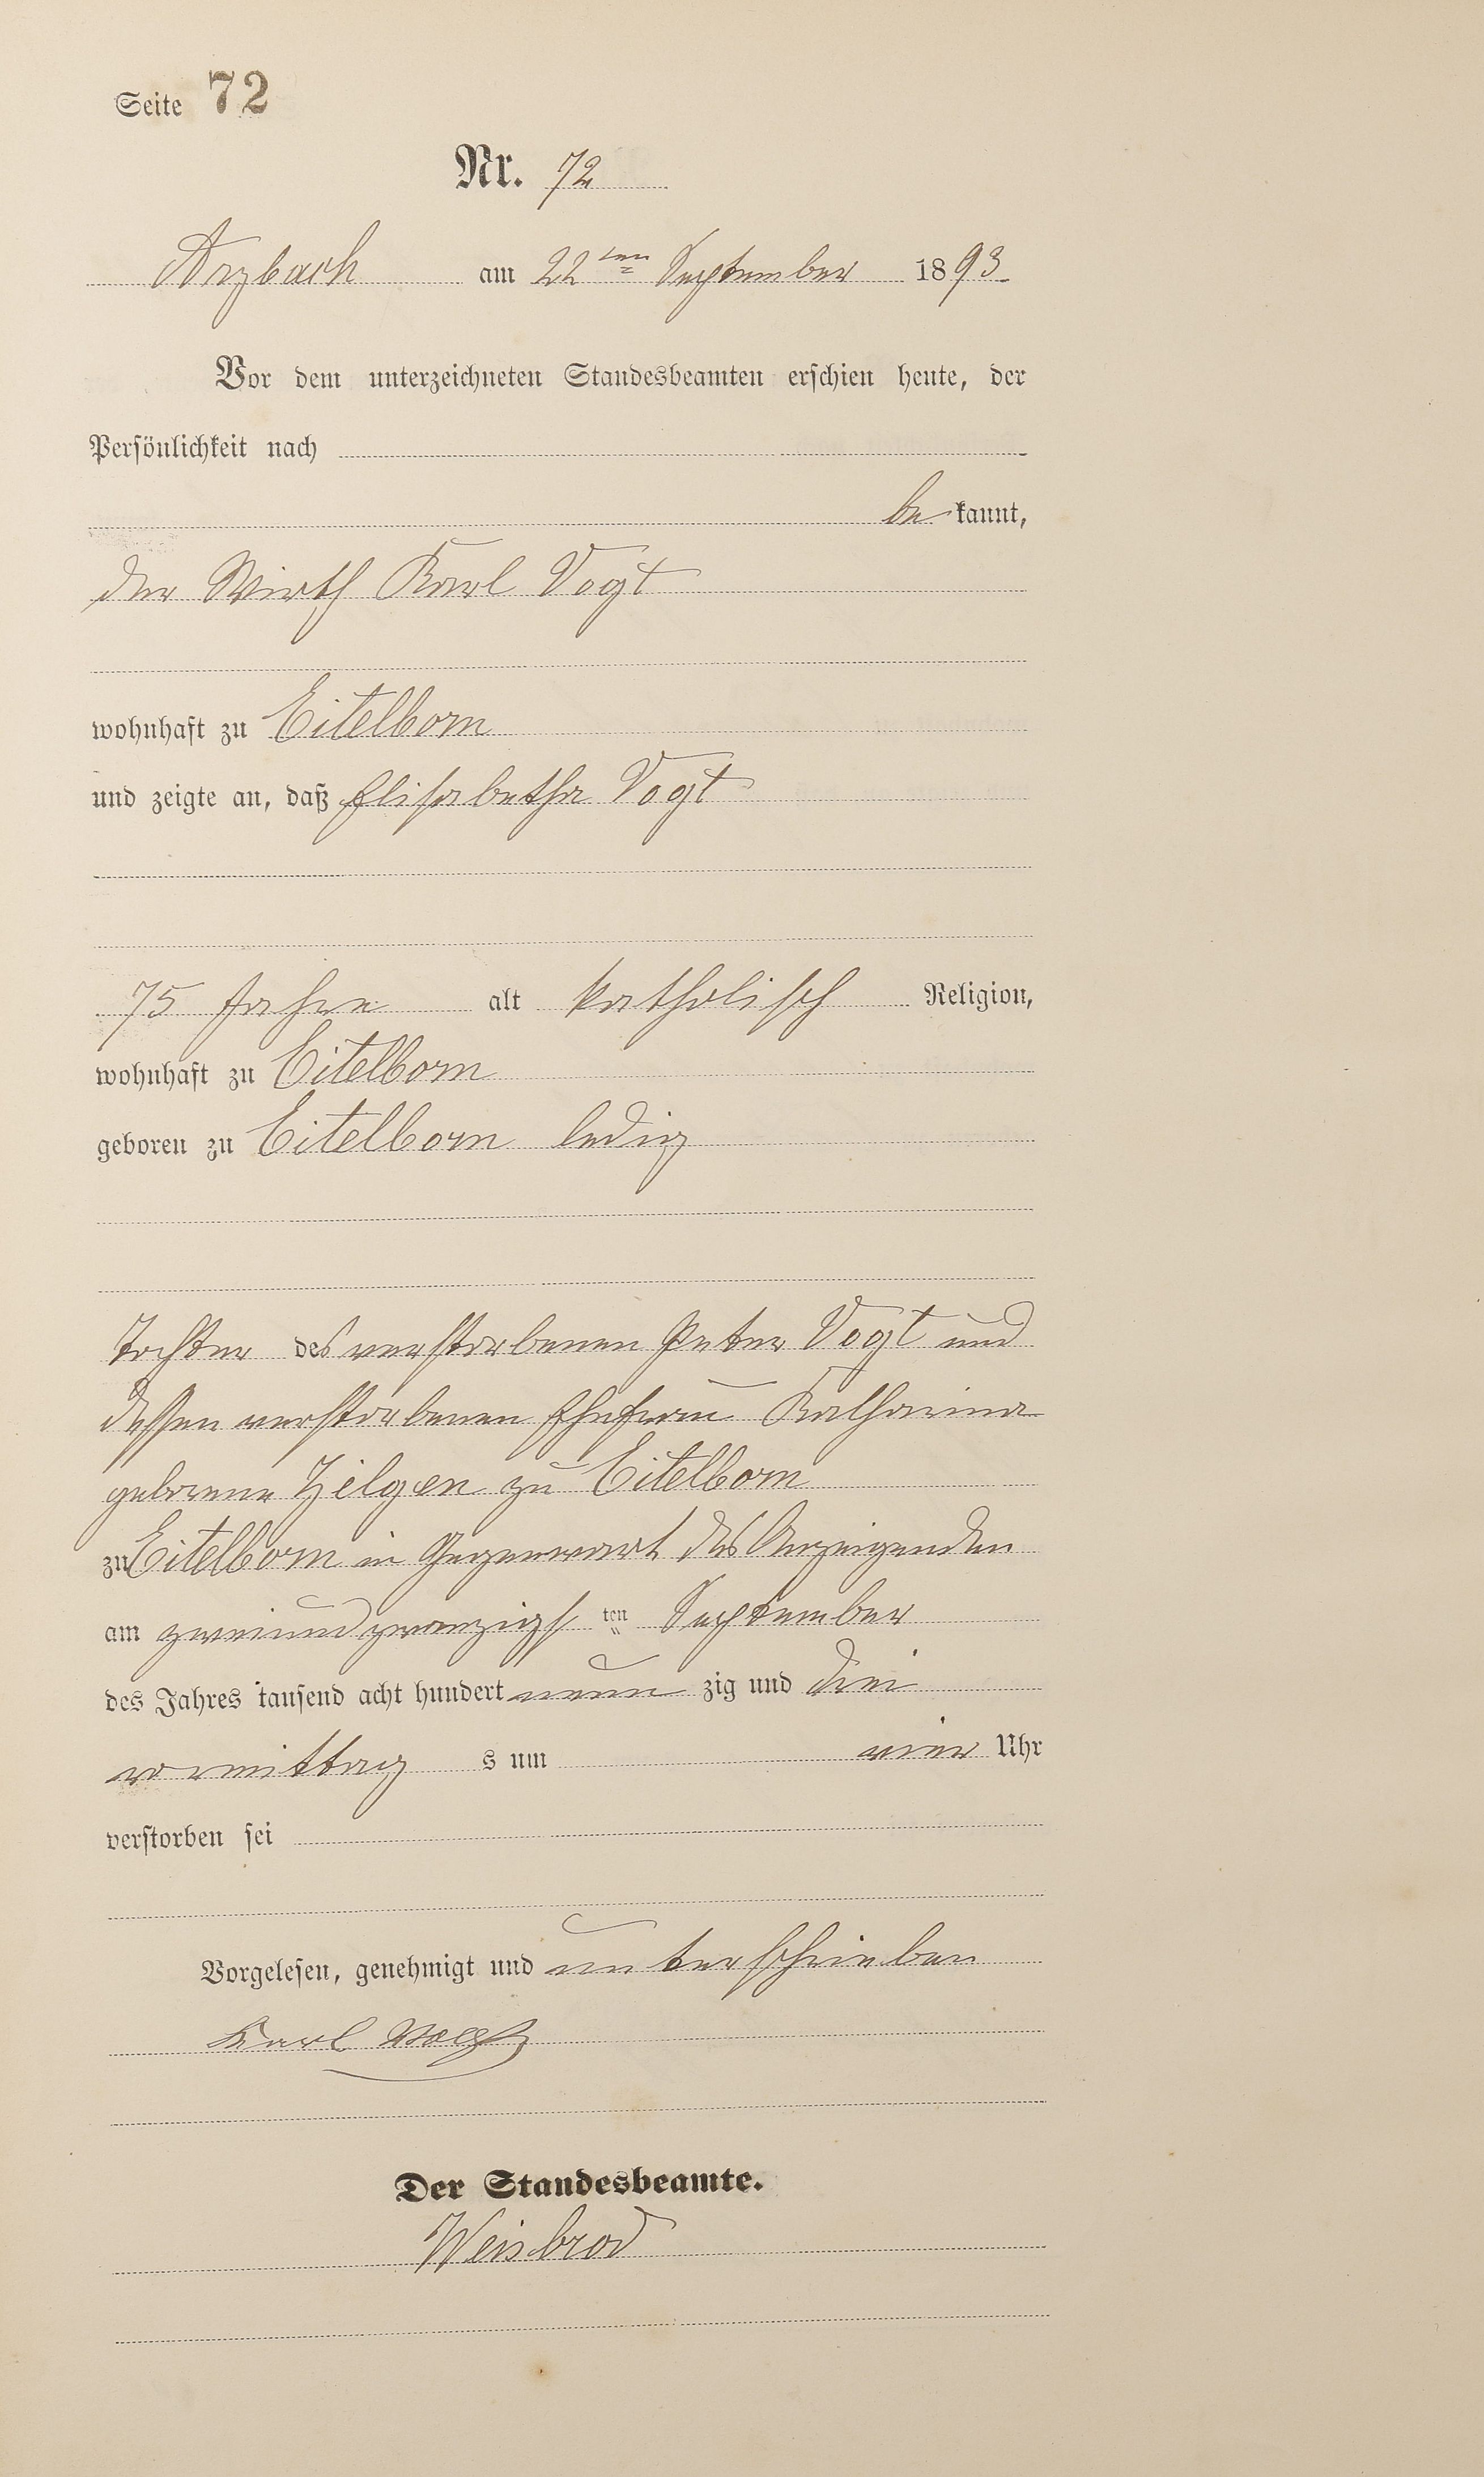 Seite 72
Nr. 72
Arzbach am 22ten September 1893
Vor dem unterzeichneten Standesbeamten erschien heute, der
Persönlichkeit nach
bekannt,
der Wirth Karl Vogt
wohnhaft zu Eitelborn
und zeigte an, daß Elisabetha Vogt
75 Jahre alt katholisch Religion,
wohnhaft zu Eitelborn
geboren zu Eitelborn ledig
Tochter des verstorbenen Peter Vogt und
dessen verstorbenen Ehefrau Katharina
geborene Hilgen zu Eitelborn
zu Eitelborn in Gegenwart des Anzeigenden
am zweiundzwanzigsten September
des Jahres tausend acht hundert neunzig und drei
vormittags um vier Uhr
verstorben sei
Vorgelesen, genehmigt und unterschrieben
Karl Vogt
Der Standesbeamte.
Weisbrod